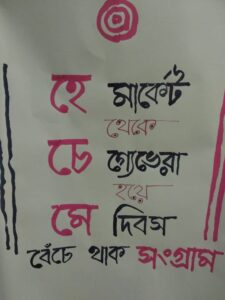 হে মার্কেট
থেকে
চে গ্যেভেরা
হয়ে
মে দিবস
বেঁচে থাক সংগ্রাম